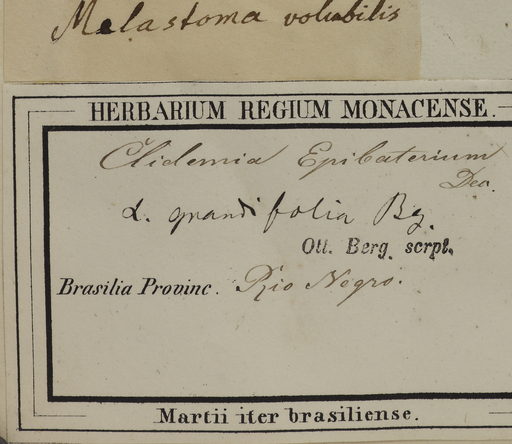 Melastoma volubilis
HERBARIUM REGIUM MONACENSE.
Clidemia Epibaterium
Dec.
α. grandifolia Bg.
Ott. Berg. scrpt.
Brasilia Provinc. Rio Negro.
Martii iter brasiliense.